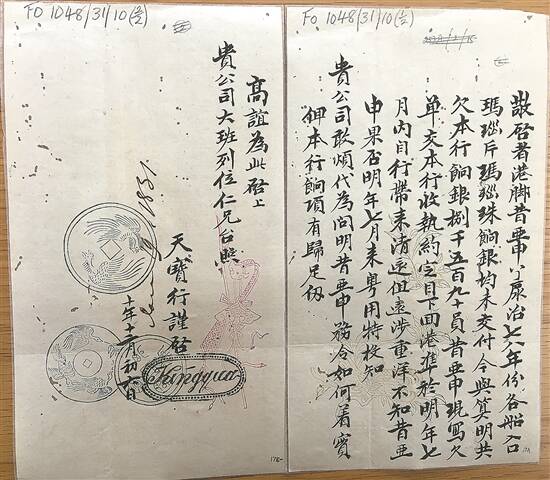 FO 1048/31/10 (1/2)
敬啓者港脚昔亜申治七八年份各船口
瑪瑙片瑪瑙珠餉銀均未交付今與算明共
欠本行餉銀捌千五百九十員昔亜申現寫欠
单交本行收執約定目下回港準於明年七
月內自行帶来清還但遠涉重洋不知昔亜
申果否明年七月来粤用特投知
貴公司敢煩代為問明昔亜申務令如何着實
俾本行餉項有歸足仞
FO 1048/31/10 (2/2)
高誼為此啓上
貴公司大班列位仁兄台照
天寶行謹啓
Kingqua
十年十二月初六日
1831.